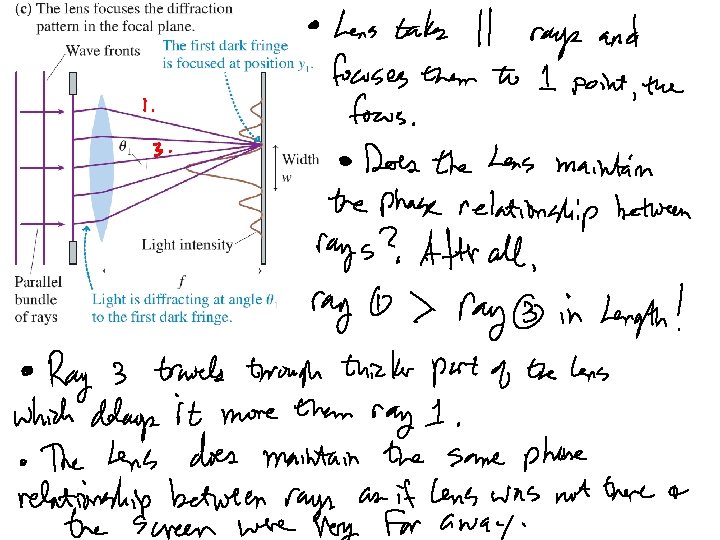 (c) The lens focuses the diffraction
pattern in the focal plane.
Wave fronts
The first dark fringe
is focused at position y₁.
1.
θ₁
3.
Width
w
Light intensity
f
Parallel
bundle
of rays
Light is diffracting at angle θ₁
to the first dark fringe.
• Lens takes || rays and
focuses them to 1 point, the
focus.
• Does the Lens maintain
the phase relationship between
rays? After all,
ray ① > ray ③ in Length!
• Ray 3 travels through thicker part of the lens
which delays it more them ray 1.
• The Lens does maintain the same phase
relationship between rays as if Lens was not there &
the screen were very far away.